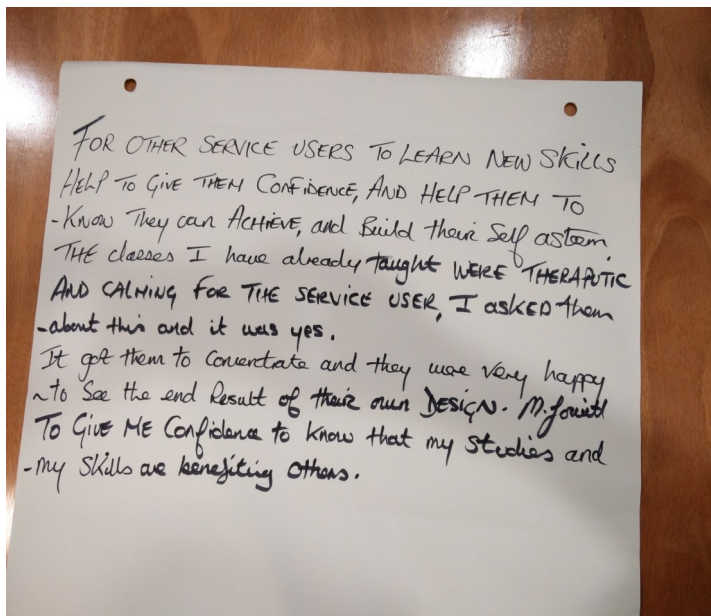 FOR OTHER SERVICE USERS TO LEARN NEW SKILLS
HELP TO GIVE THEM CONFIDENCE, AND HELP THEM TO
-KNOW THEY can ACHIEVE, and Build their Self asteem.
THE classes I have already taught WERE THERAPUTIC
AND CALMING FOR THE SERVICE USER, I ASKED them
-about this and it was yes.
It got them to Concentrate and they were very happy
~to See the end Result of their own DESIGN.
To GIVE ME Confidence to Know that my Studies and
-my Skills are benefiting Others.